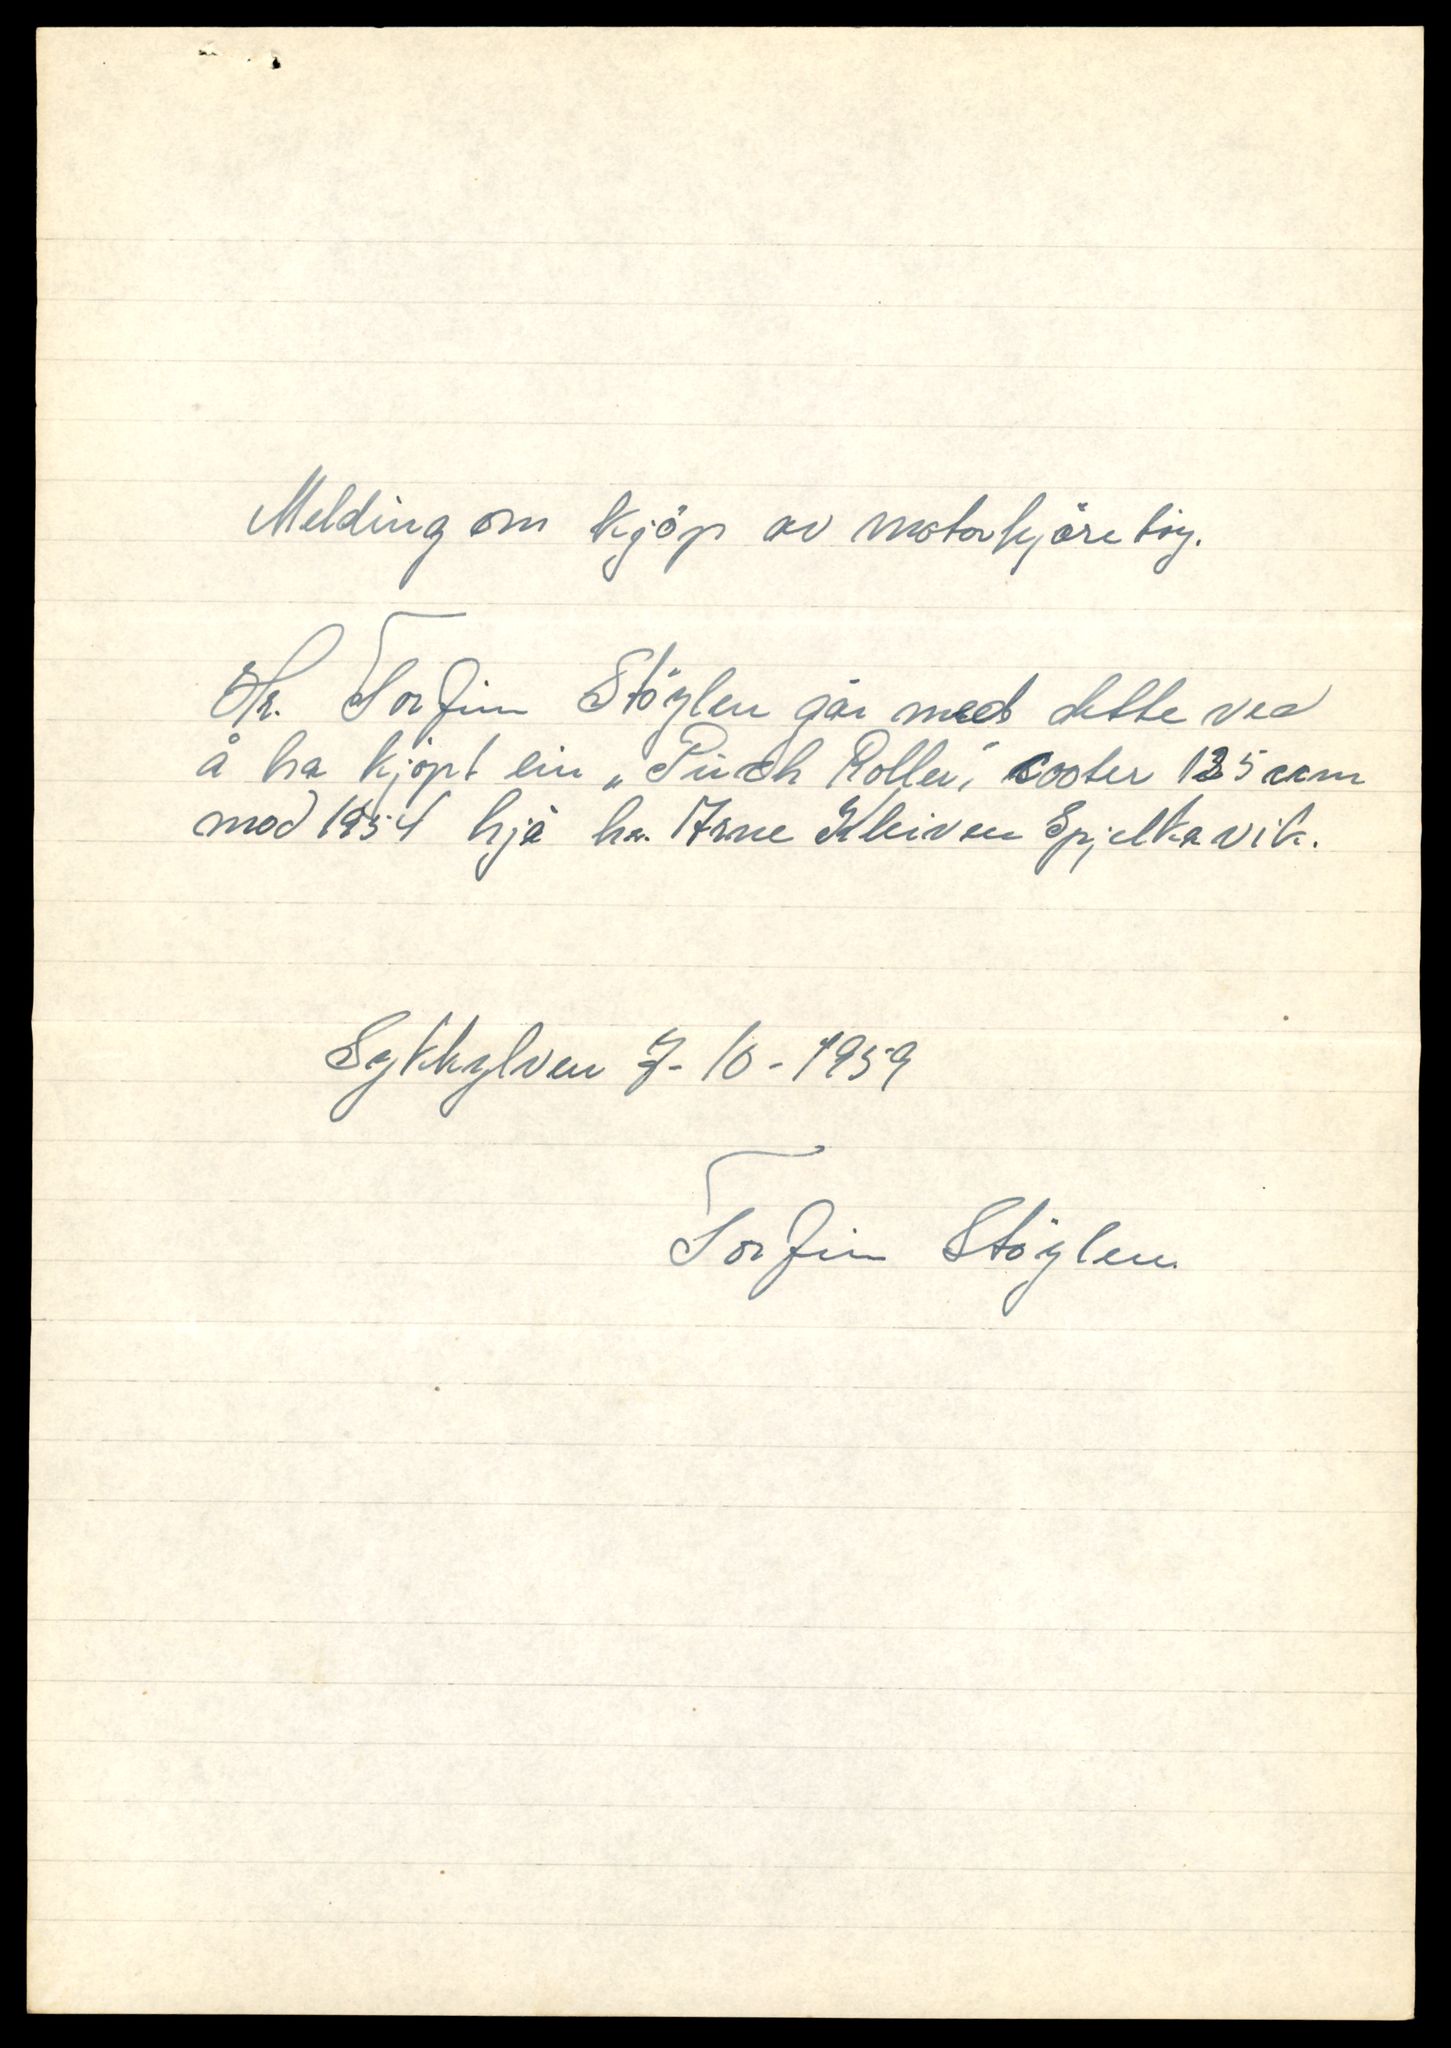 Melding om kjöp av motorkjöretöy.
Hr. Torfinn Stöylen går med dette ved
å ha kjöpt ein „Puch Roller", cooter 125 ccm
mod 1954 hjå hr. Arne Kleiven Spjelkavik.
Sykkylven 7-10-1959
Torfinn Stöylen.